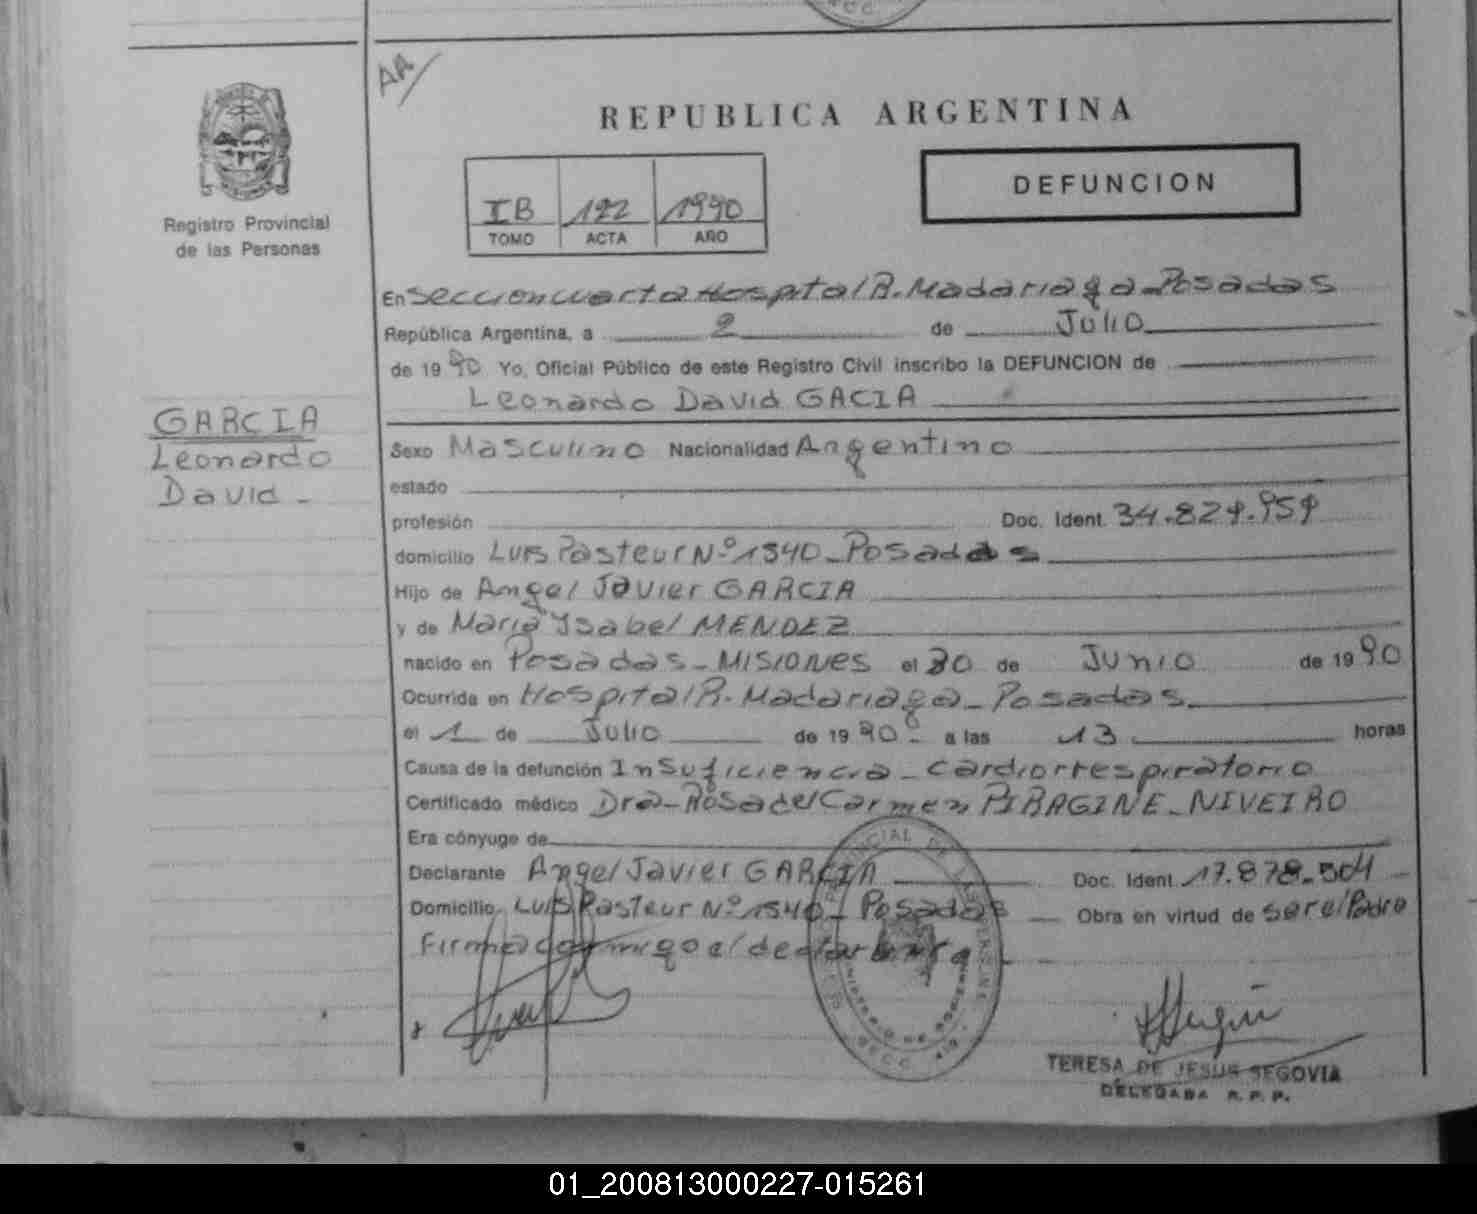 AA/
REPUBLICA ARGENTINA
DEFUNCION
IB 122 1990
TOMO ACTA AÑO
Registro Provincial
de las Personas
En Sección cuarta Hospital R. Madariaga - Posadas
República Argentina, a 2 de Julio
de 1990 Yo, Oficial Público de este Registro Civil inscribo la DEFUNCION de
Leonardo David GACIA
GARCIA
Leonardo
David -
Sexo Masculino Nacionalidad Argentino
estado
profesión Doc. Ident.
domicilio Luis Pasteur Nº 1540 - Posadas
Hijo de Angel Javier GARCIA
y de Maria Ysabel MENDEZ
nacido en Posadas - MISIONES el 30 de Junio de 1990
Ocurrida en Hospital R. Madariaga - Posadas
el 1 de Julio de 1990 a las 13 horas
Causa de la defunción Insuficiencia - cardiorrespiratorio
Certificado médico Dra - Rosa del Carmen PIRAGINE - NIVEIRO
Era cónyuge de
Declarante Angel Javier GARCIA Doc. Ident. 17.878.504
Domicilio Luis Pasteur Nº 1540 - Posadas - Obra en virtud de ser el Padre
Firma conmigo el declarante
SECC. 4ta
TERESA DE JESUS SEGOVIA
DELEGADA R. P. P.
01_200813000227-015261